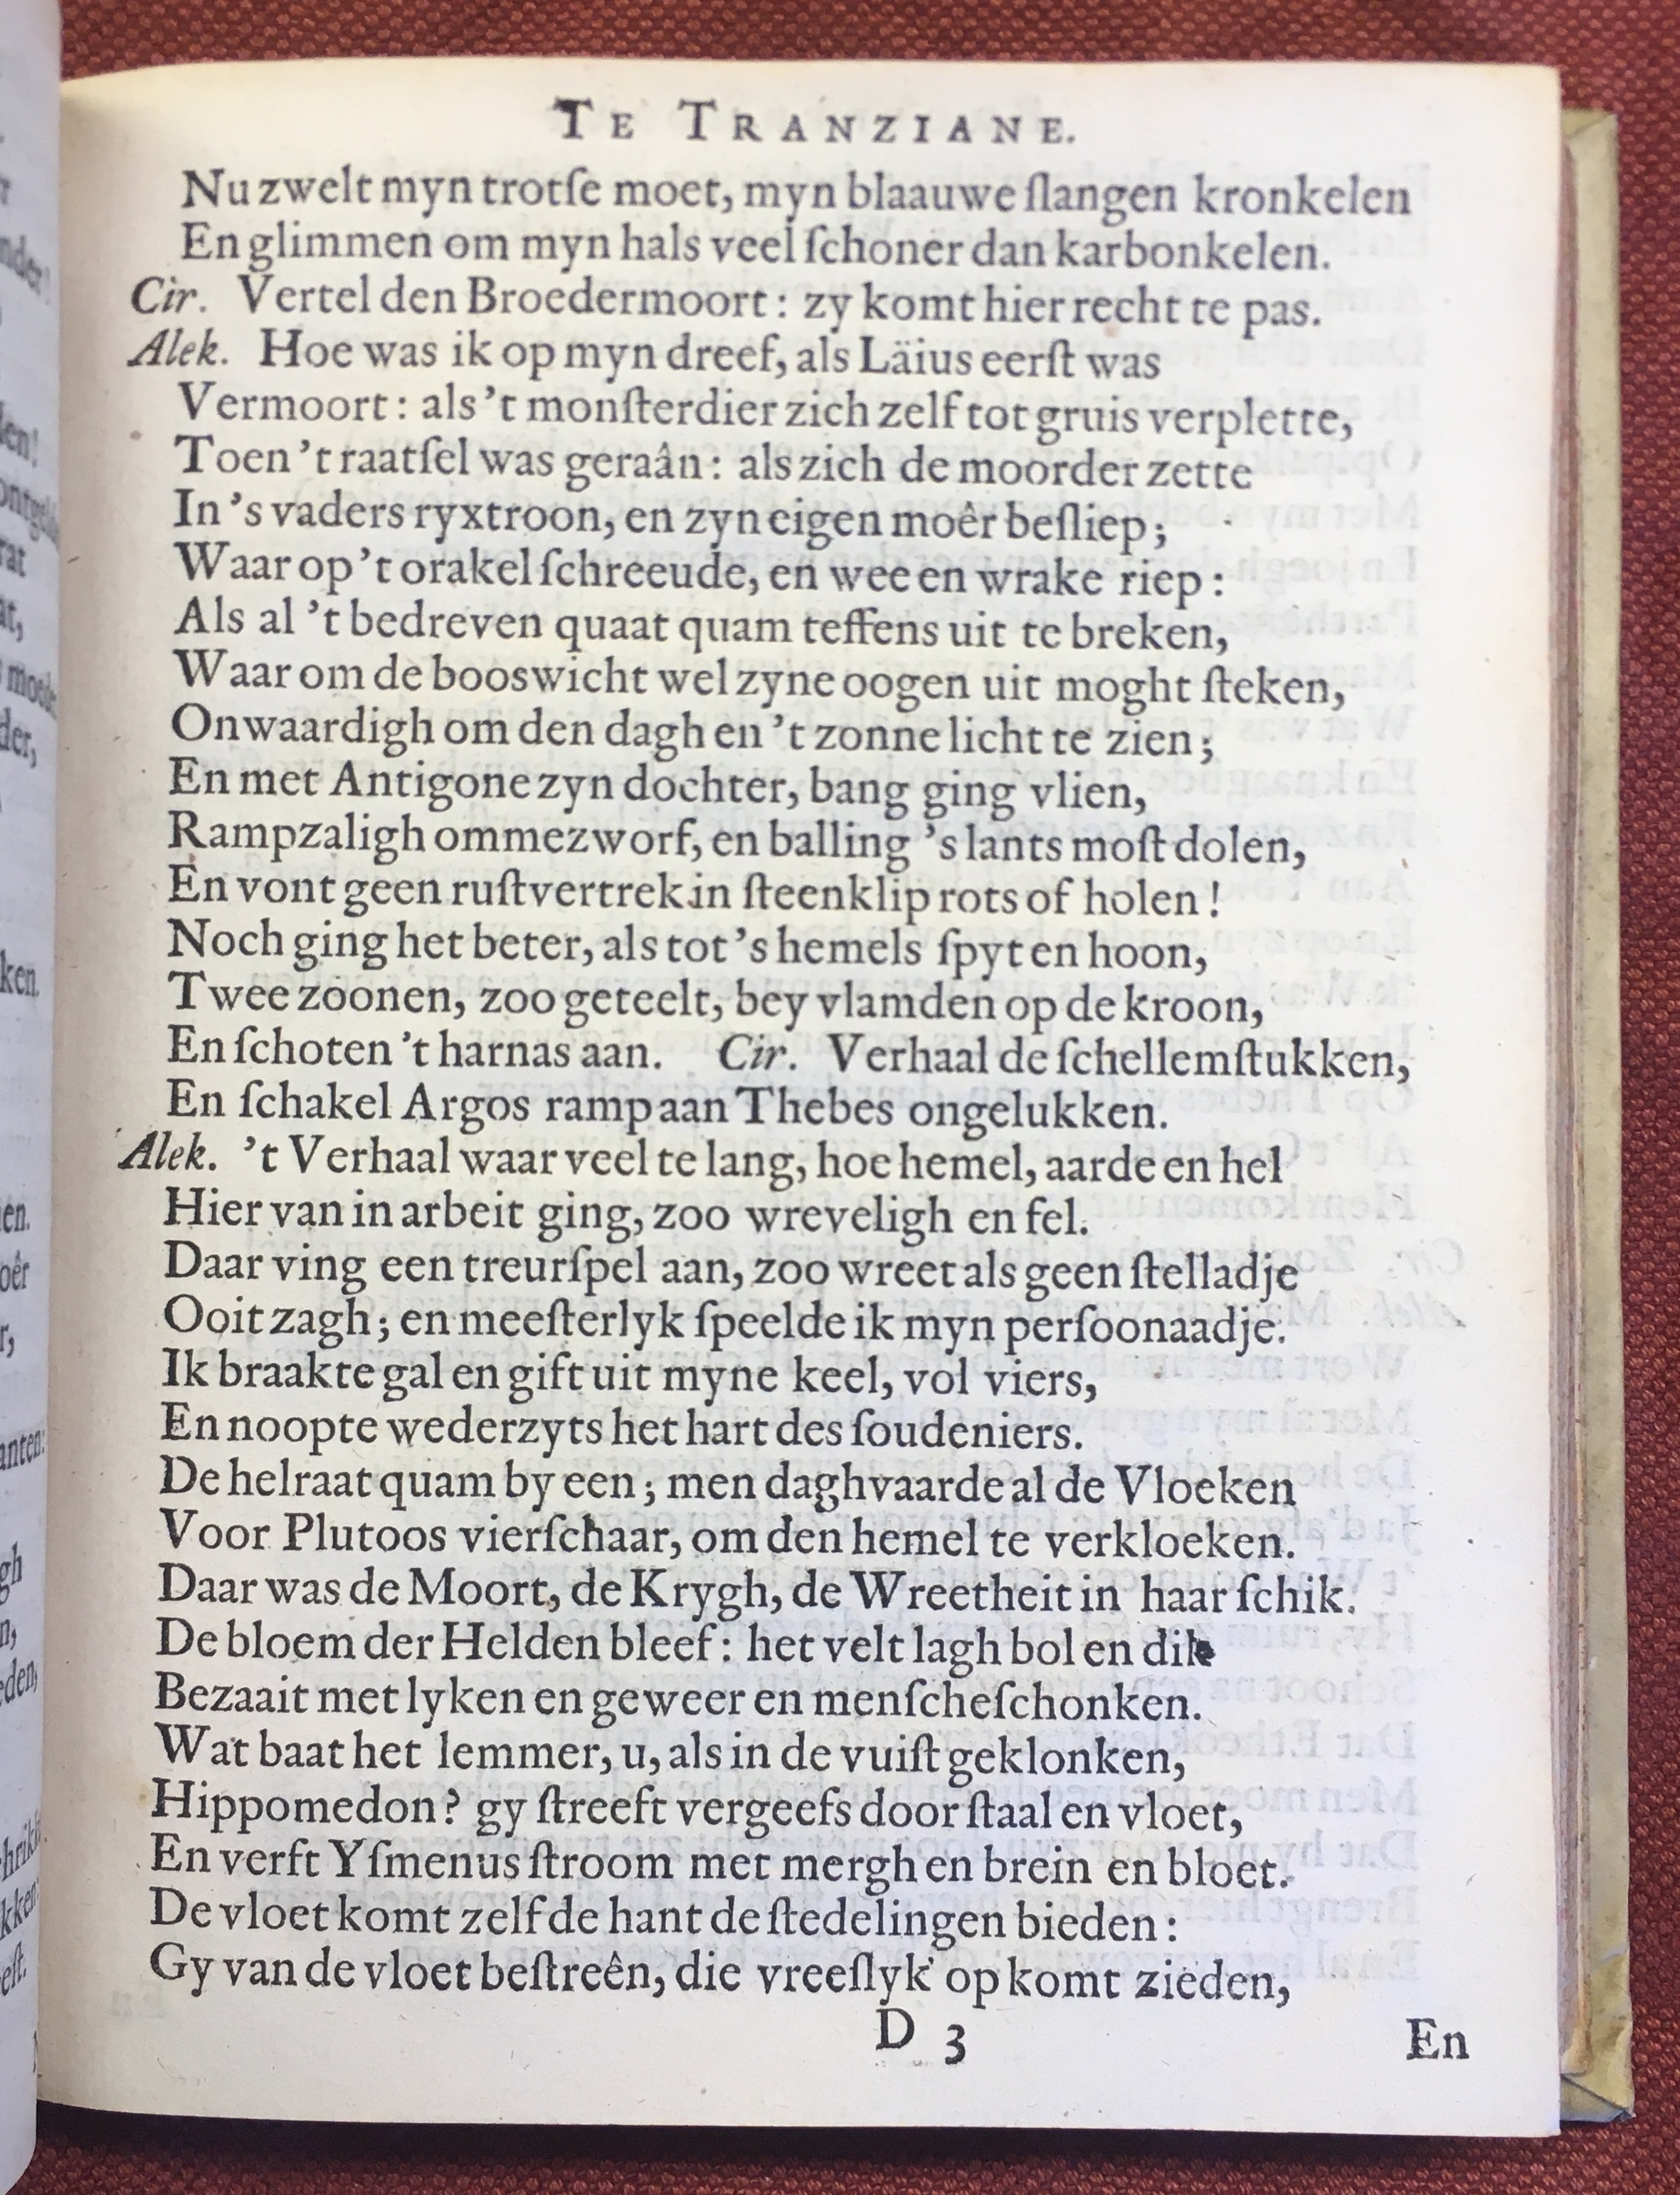 TE TRANZIANE.
Nu zwelt myn trotſe moet, myn blaauwe ſlangen kronkelen
En glimmen om myn hals veel ſchoner dan karbonkelen.
Cir. Vertel den Broedermoort: zy komt hier recht te pas.
Alek. Hoe was ik op myn dreef, als Läius eerſt was
Vermoort: als 't monſterdier zich zelf tot gruis verplette,
Toen 't raatſel was geraân: als zich de moorder zette
In 's vaders ryxtroon, en zyn eigen moêr beſliep;
Waar op 't orakel ſchreeude, en wee en wrake riep:
Als al 't bedreven quaat quam teffens uit te breken,
Waar om de booswicht wel zyne oogen uit moght ſteken,
Onwaardigh om den dagh en 't zonne licht te zien;
En met Antigone zyn dochter, bang ging vlien,
Rampzaligh ommezworf, en balling 's lants moſt dolen,
En vont geen ruſtvertrek in ſteenklip rots of holen!
Noch ging het beter, als tot 's hemels ſpyt en hoon,
Twee zoonen, zoo geteelt, bey vlamden op de kroon,
En ſchoten 't harnas aan. Cir. Verhaal de ſchellemſtukken,
En ſchakel Argos ramp aan Thebes ongelukken.
Alek. 't Verhaal waar veel te lang, hoe hemel, aarde en hel
Hier van in arbeit ging, zoo wreveligh en fel.
Daar ving een treurſpel aan, zoo wreet als geen ſtelladje
Ooit zagh; en meeſterlyk ſpeelde ik myn perſoonaadje.
Ik braakte gal en gift uit myne keel, vol viers,
En noopte wederzyts het hart des ſoudeniers.
De helraat quam by een; men daghvaarde al de Vloeken
Voor Plutoos vierſchaar, om den hemel te verkloeken.
Daar was de Moort, de Krygh, de Wreetheit in haar ſchik.
De bloem der Helden bleef: het velt lagh bol en dik
Bezaait met lyken en geweer en menſcheſchonken.
Wat baat het lemmer, u, als in de vuiſt geklonken,
Hippomedon? gy ſtreeft vergeefs door ſtaal en vloet,
En verft Yſmenus ſtroom met mergh en brein en bloet.
De vloet komt zelf de hant de ſtedelingen bieden:
Gy van de vloet beſtreên, die vreeſlyk op komt zieden,
D 3
En